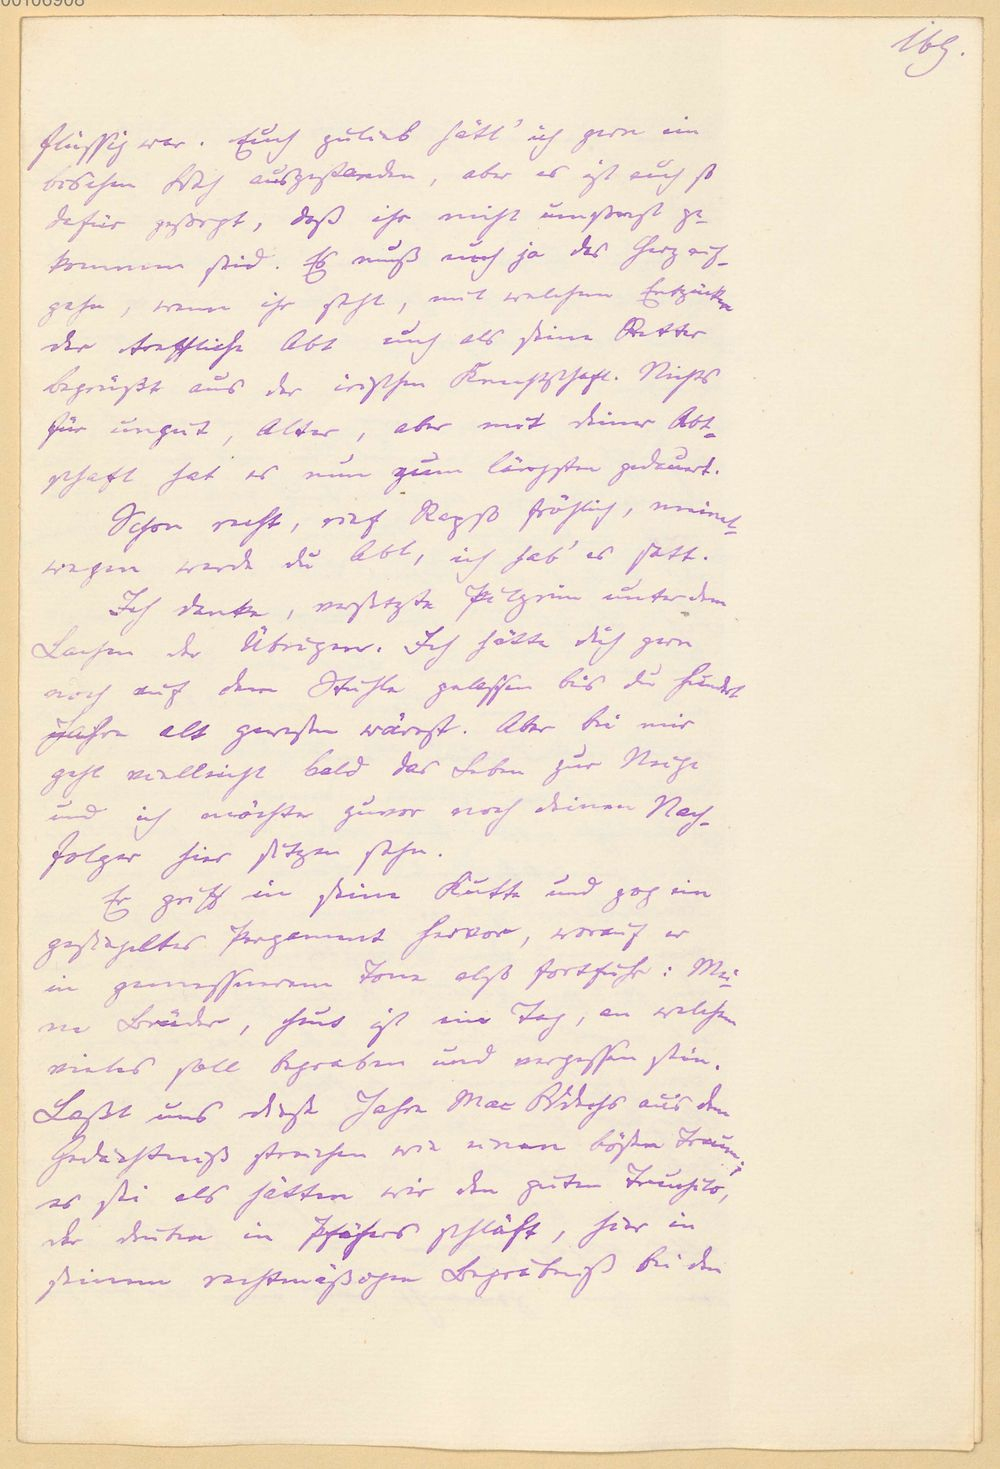 00106908
169.
flüssig war. Euch zulieb hätt' ich gern ein
bischen Weh ausgestanden, aber es ist auch so
dafür gesorgt, daß ihr nicht umsonst ge-
kommen seid. Es muß euch ja das Herz auf-
gehn, wenn ihr seht, mit welchem Entzücken
der treffliche Abt euch als seine Retter
begrüßt aus der irischen Knechtschaft. Nichts
für ungut, Alter, aber mit deiner Abt-
schaft hat es nun zum längsten gedauert.
Schon recht, rief Razzo fröhlich, meinet-
wegen werde du Abt, ich hab' es satt.
Ich danke, versetzte Pilgrim unter dem
Lachen der Übrigen. Ich hätte dich gern
noch auf dem Stuhle gelassen bis du hundert
Jahre alt gewesen wärest. Aber bei mir
geht vielleicht bald das Leben zur Neige
und ich möchte zuvor noch deinen Nach-
folger hier sitzen sehn.
Er griff in seine Kutte und zog ein
gesiegeltes Pergament hervor, worauf er
in gemessnerem Tone also fortfuhr: Mei-
ne Brüder, heut ist ein Tag, an welchem
vieles soll begraben und vergessen sein.
Laßt uns diese Jahre Mac aus dem
Gedächtniß streichen wie einen bösen Traum;
es sei als hätten wir den guten
der drüben in Pfäfers schläft, hier in
seinem rechtmäßigen Begräbniß bei den